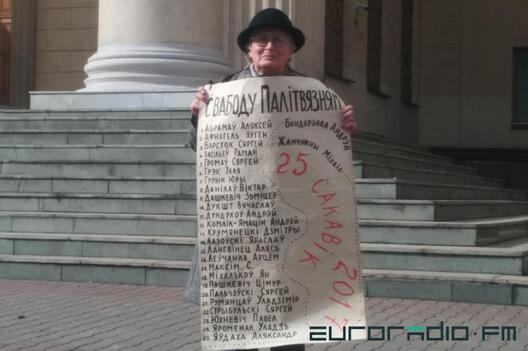 Свабоду Палітвязням
Бандарэнка Андрэй
Жамчужны Міхаіл
1. Абрамаў Аляксей
2. Афнагель Яўген
3. Барсток Сяргей
4. Васільеў Раман
5. Громаў Сяргей
6. Грэк Ілля
7. Гурын Юры
8. Данілаў Віктар
9. Дашкевіч Зьміцер
10. Дукшт Вячаслаў
11. Дундукоў Андрэй
12. Комлік-Ямацін Андрэй
13. Крэмянецкі Дзмітры
14. Лазоўскі Яраслаў
15. Лангвінец Алесь
16. Леўчанка Арцем
17. Максім С.
18. Міхалькоў Ян
19. Пашкевіч Цімур
20. Пальчэўскі Сяргей
21. Румянцаў Уладзімір
22. Стрыбульскі Сяргей
23. Юхневіч Павел
24. Яроменак Уладзь
25. Яўдаха Аляксандр
25 Сакавік 2017
EURORADIO.FM